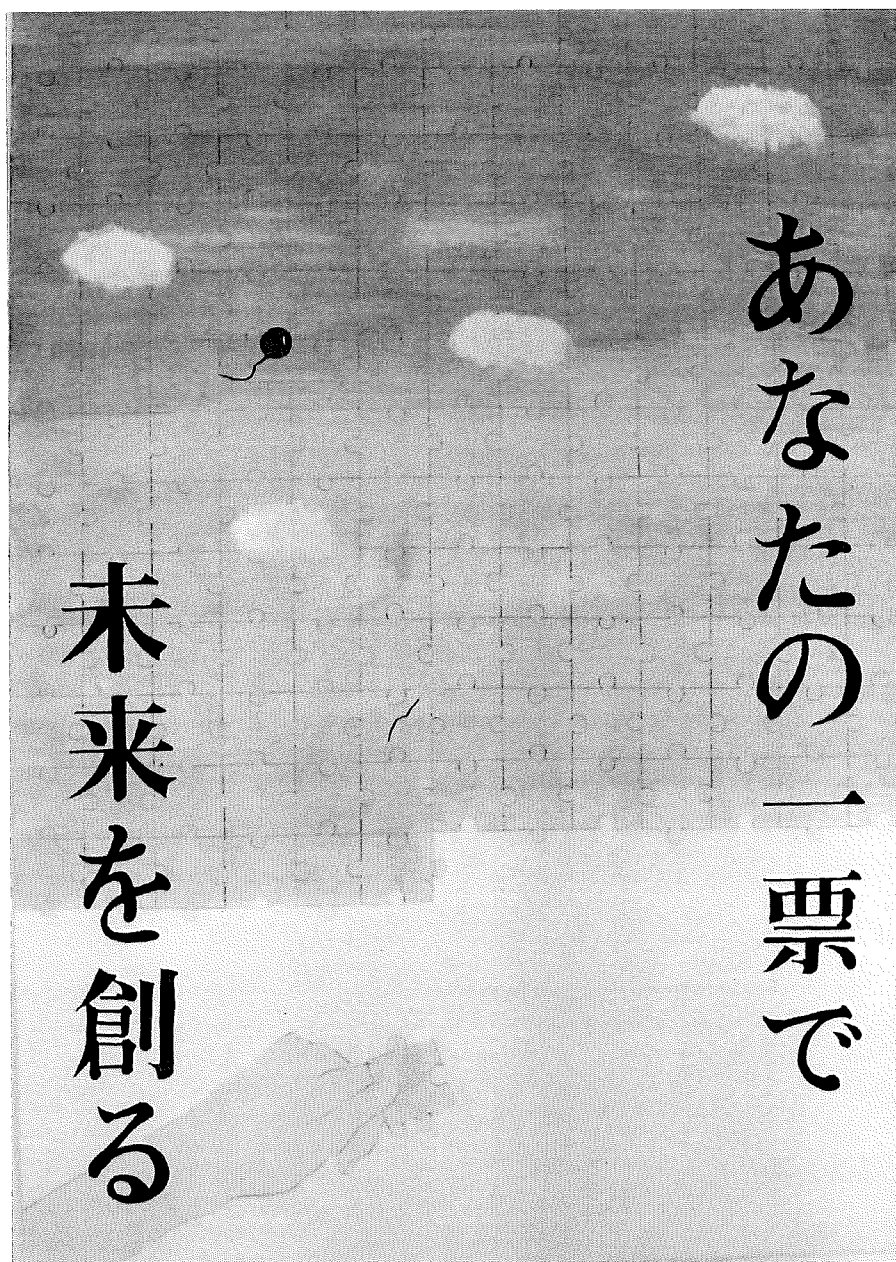 あなたの一票で
未来を創る